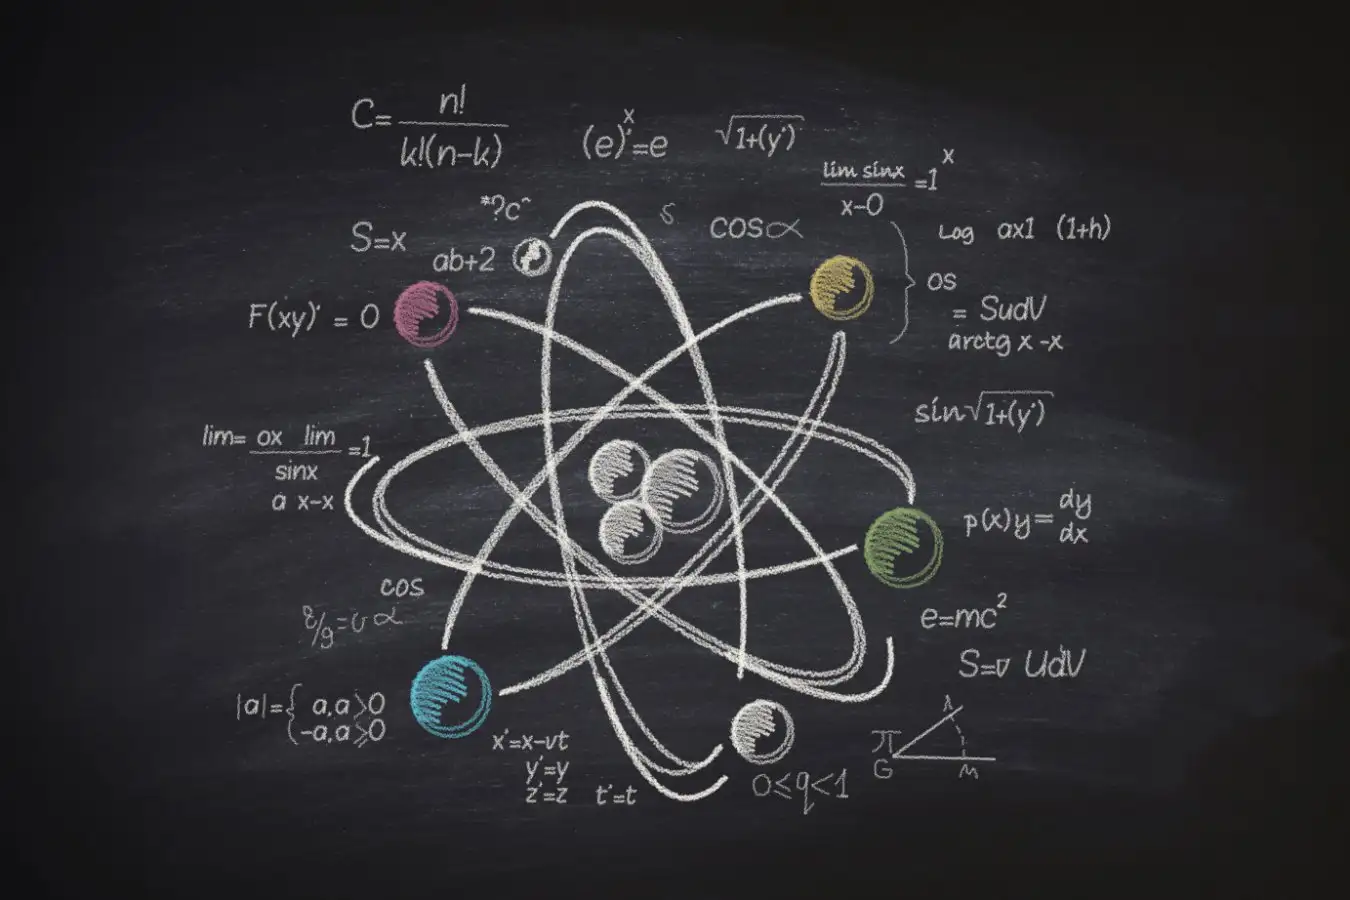 C= n!
k!(n-k)
(e)'=e
x
√1+(y')
lim sinx =1
x-0
x
*?c^
S
cosα
Log ax1 (1+h)
S=x
ab+2
os
F(xy)' = 0
= SudV
arctg x -x
sin√1+(y')
lim= ox lim =1
sinx
a x-x
p(x)y= dy
dx
cos
α
e=mc²
S=▽ UdV
|a|={ a,a>0
(-a,a≥0
x'=x-vt
y'=y
z'=z t'=t
0≤q<1
π
G M